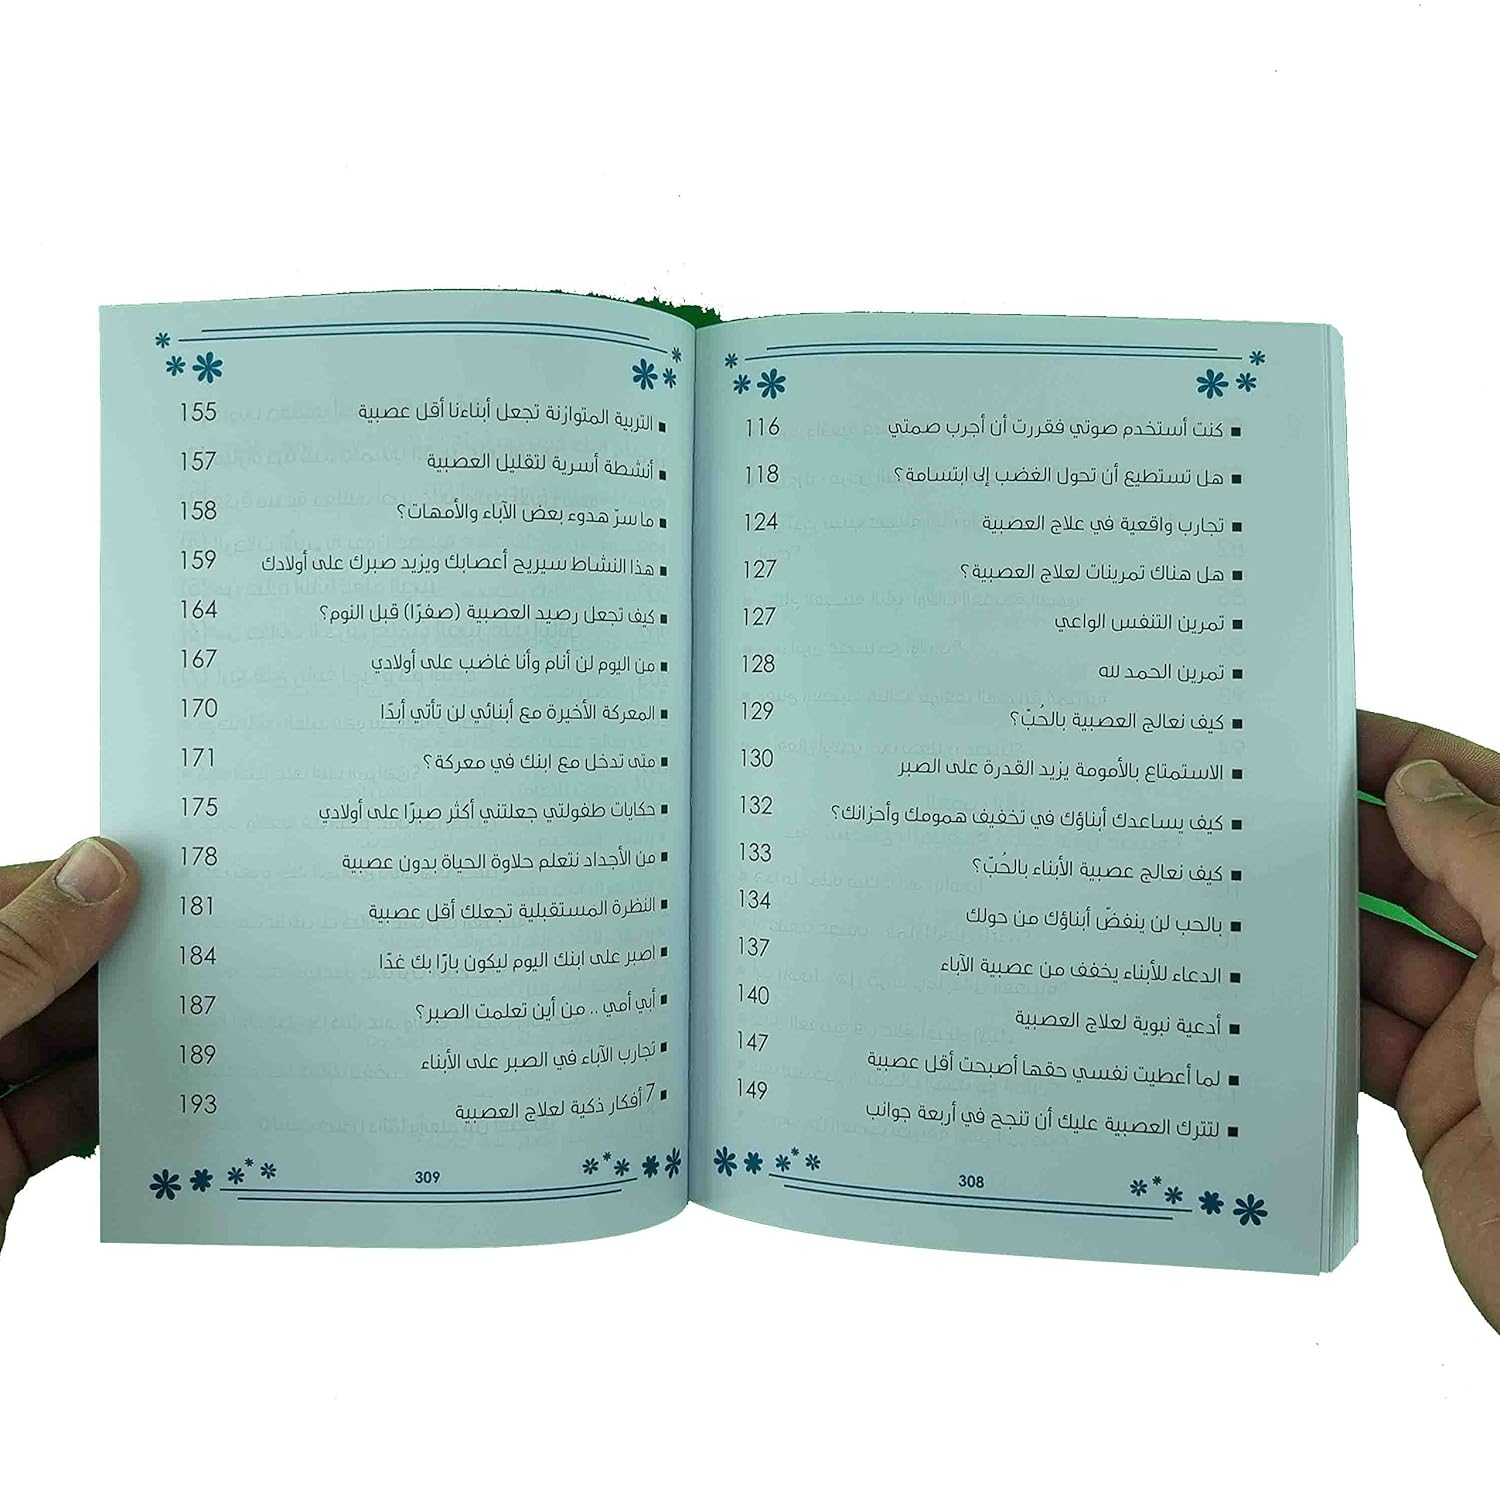 ■ كنت أستخدم صوتي فقررت أن أجرب صمتي 116
■ هل تستطيع أن تحول الغضب إلى ابتسامة؟ 118
■ تجارب واقعية في علاج العصبية 124
■ هل هناك تمرينات لعلاج العصبية؟ 127
■ تمرين التنفس الواعي 127
■ تمرين الحمد لله 128
■ كيف نعالج العصبية بالحُبّ؟ 129
■ الاستمتاع بالأمومة يزيد القدرة على الصبر 130
■ كيف يساعدك أبناؤك في تخفيف همومك وأحزانك؟ 132
■ كيف نعالج عصبية الأبناء بالحُبّ؟ 133
■ بالحب لن ينفضّ أبناؤك من حولك 134
■ الدعاء للأبناء يخفف من عصبية الآباء 137
■ أدعية نبوية لعلاج العصبية 140
■ لما أعطيت نفسي حقها أصبحت أقل عصبية 147
■ لتترك العصبية عليك أن تنجح في أربعة جوانب 149
308
■ التربية المتوازنة تجعل أبناءنا أقل عصبية 155
■ أنشطة أسرية لتقليل العصبية 157
■ ما سرّ هدوء بعض الآباء والأمهات؟ 158
■ هذا النشاط سيريح أعصابك ويزيد صبرك على أولادك 159
■ كيف تجعل رصيد العصبية (صفرًا) قبل النوم؟ 164
■ من اليوم لن أنام وأنا غاضب على أولادي 167
■ المعركة الأخيرة مع أبنائي لن تأتي أبدًا 170
■ متى تدخل مع ابنك في معركة؟ 171
■ حكايات طفولتي جعلتني أكثر صبرًا على أولادي 175
■ من الأجداد نتعلم حلاوة الحياة بدون عصبية 178
■ النظرة المستقبلية تجعلك أقل عصبية 181
■ اصبر على ابنك اليوم ليكون بارًا بك غدًا 184
■ أبي أمي .. من أين تعلمت الصبر؟ 187
■ تجارب الآباء في الصبر على الأبناء 189
■ 7 أفكار ذكية لعلاج العصبية 193
309